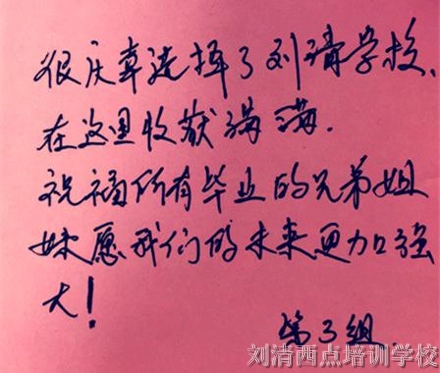 很庆幸选择了刘清学校,
在这里收获满满.
祝福所有毕业的兄弟姐
妹愿我们的未来更加强
大!
第3组
刘清西点培训学校